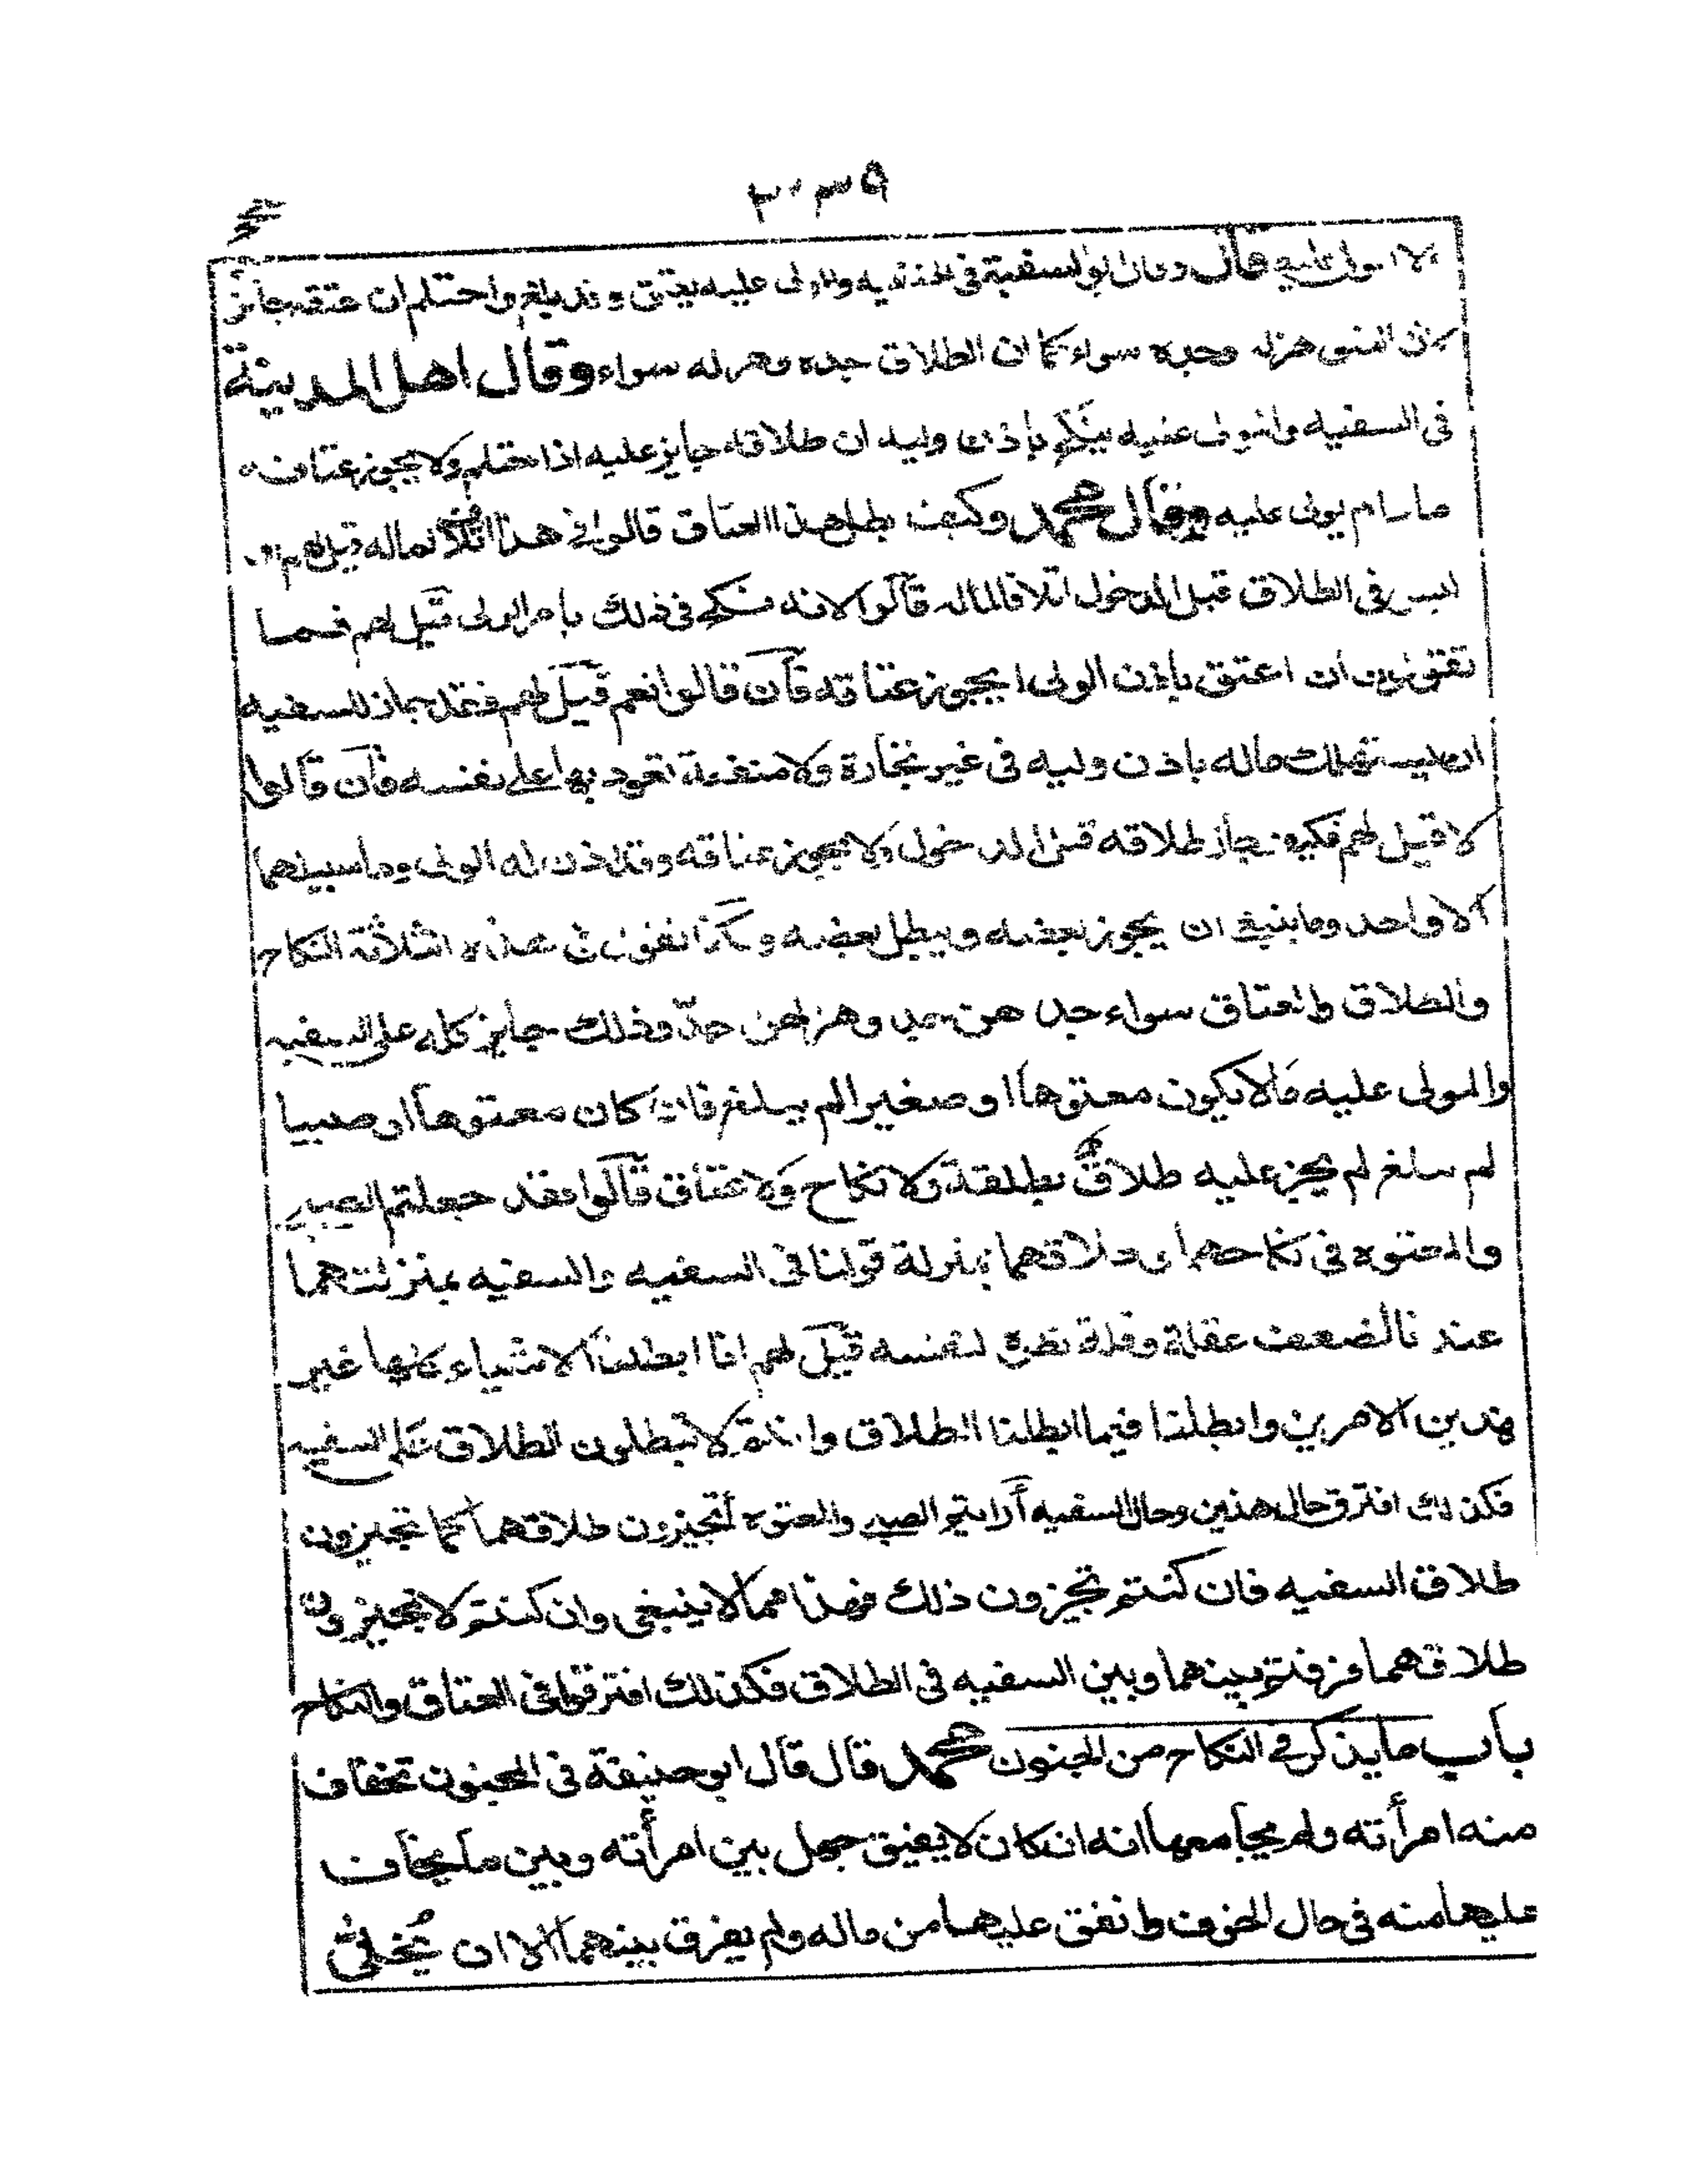 قال وقال ابو حنيفة فى السفيه والمولى عليه يعتق وقد بلغ واحتلم ان عتقه جائز
لان العتق هزله وجده سواء كما ان الطلاق جده وهزله سواء وقال اهل المدينة
فى السفيه والمولى عليه ينكح باذن وليه ان طلاقه جايز عليه اذا احتلم ولا يجوز عتاقته
ما دام يولى عليه وقال محمد وكيف بطل هذا العتاق قالوا فى هذا اتلاف لماله قيل لهم او
ليس فى الطلاق قبل الدخول اتلافا لماله قالوا لانه نكح فى ذلك بامر الولى قيل لهم فما
تقولون ان اعتق باذن الولى ايجوز عتاقه فان قالوا نعم قيل لهم فقد جاز للسفيه
ان يستهلك ماله باذن وليه فى غير تجارة ولا منفعة تعود بها على نفسه فان قالوا
لا قيل لهم فكيف جاز طلاقه قبل الدخول ولا يجوز عتاقه وقد اذن له الولى وما سبيلهما
الا واحد وما ينبغى ان يجوز بعضه ويبطل بعضه وكذا نقول فى هذه الثلاثة النكاح
والطلاق والعتاق سواء جدهن جد وهزلهن جدّ وذلك جايز كله على السفيه
والمولى عليه مالا يكون معتوها او صغيرا لم يبلغ فان كان معتوها او صبيا
لم يبلغ لم يجز عليه طلاق يطلقه ولا نكاح ولا عتاق قالوا فقد جعلتم الصبى
والمعتوه فى نكاحهما وطلاقهما بمنزلة قولنا فى السفيه والسفيه بمنزلتهما
عندنا لضعف عقله وقلة نظره لنفسه قيل لهم انا ابطلنا الاشياء كلها غير
هذين الامرين وابطلنا فيما ابطلنا الطلاق وانتم لا تبطلون الطلاق على السفيه
فكذلك افترق حال هذين وحال السفيه أرايتم الصبى والمعتوه أتجيزون طلاقهما كما تجيزون
طلاق السفيه فان كنتم تجيزون ذلك فهذا مما لا ينبغى وان كنتم لا تجيزون
طلاقهما فرقتم بينهما وبين السفيه فى الطلاق فكذلك افترقوا فى العتاق والنكاح
باب ما يذكر فى النكاح من الجنون محمد قال قال ابو حنيفة فى المجنون تخاف
منه امرأته ولم يجامعها انه ان كان لا يفيق جعل بين امرأته وبين ما يخاف
عليها منه فى حال الخوف وانفق عليها من ماله ولم يفرق بينهما الا ان يُخلى